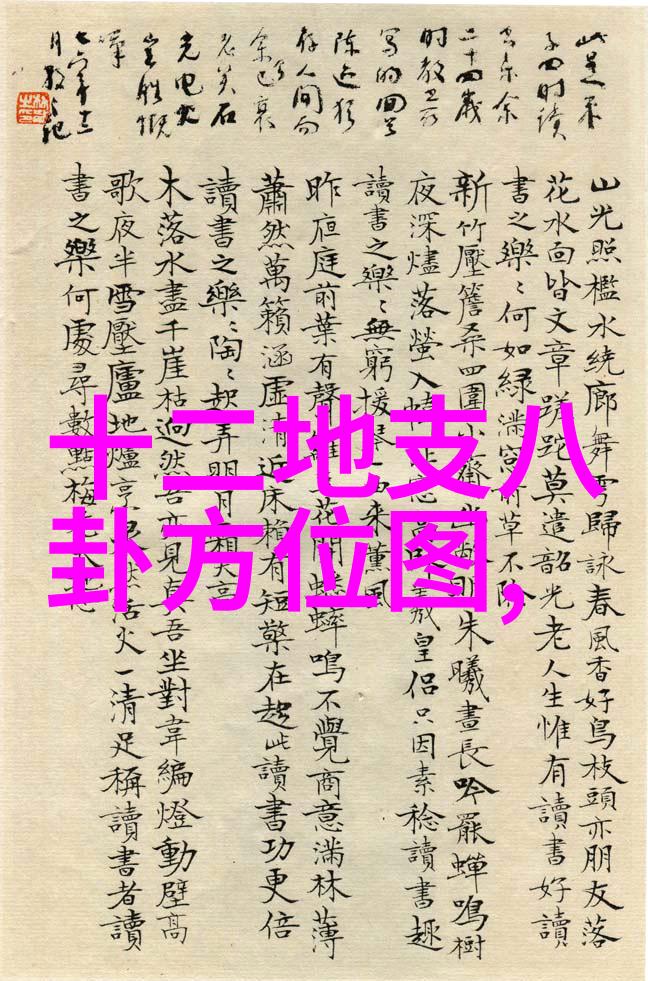 十二地支八
卦方位图,
此是朱
子四时读
书乐余
二十四歲
陈迹犹
存人间而
余已衰
老矣石
岂胜慨
山光照檻水繞廊舞雩歸詠春風香好鳥枝頭亦朋友落
花水面皆文章蹉跎莫遣韶光老人生惟有讀書好讀
書之樂〻何如綠滿窗前草不除
新竹壓簷桑四圍小齋幽敞明朱曦晝長吟罷蟬鳴樹
夜深燼落螢入幃羲皇侶只因素稔讀書趣
讀書之樂〻無窮援琴一曲來薰風
昨夜庭前葉有聲花開蟋蟀鳴不覺商意滿林薄
蕭然萬籟涵虛清近床賴有短檠在趁此讀書功更倍
讀書之樂〻陶〻起弄明月霜天高
木落水盡千崖枯迥然吾亦見真吾坐對韋編燈動壁高
歌夜半雪壓廬地爐活火一清足稱讀書者讀
書之樂何處尋數點梅花天地心